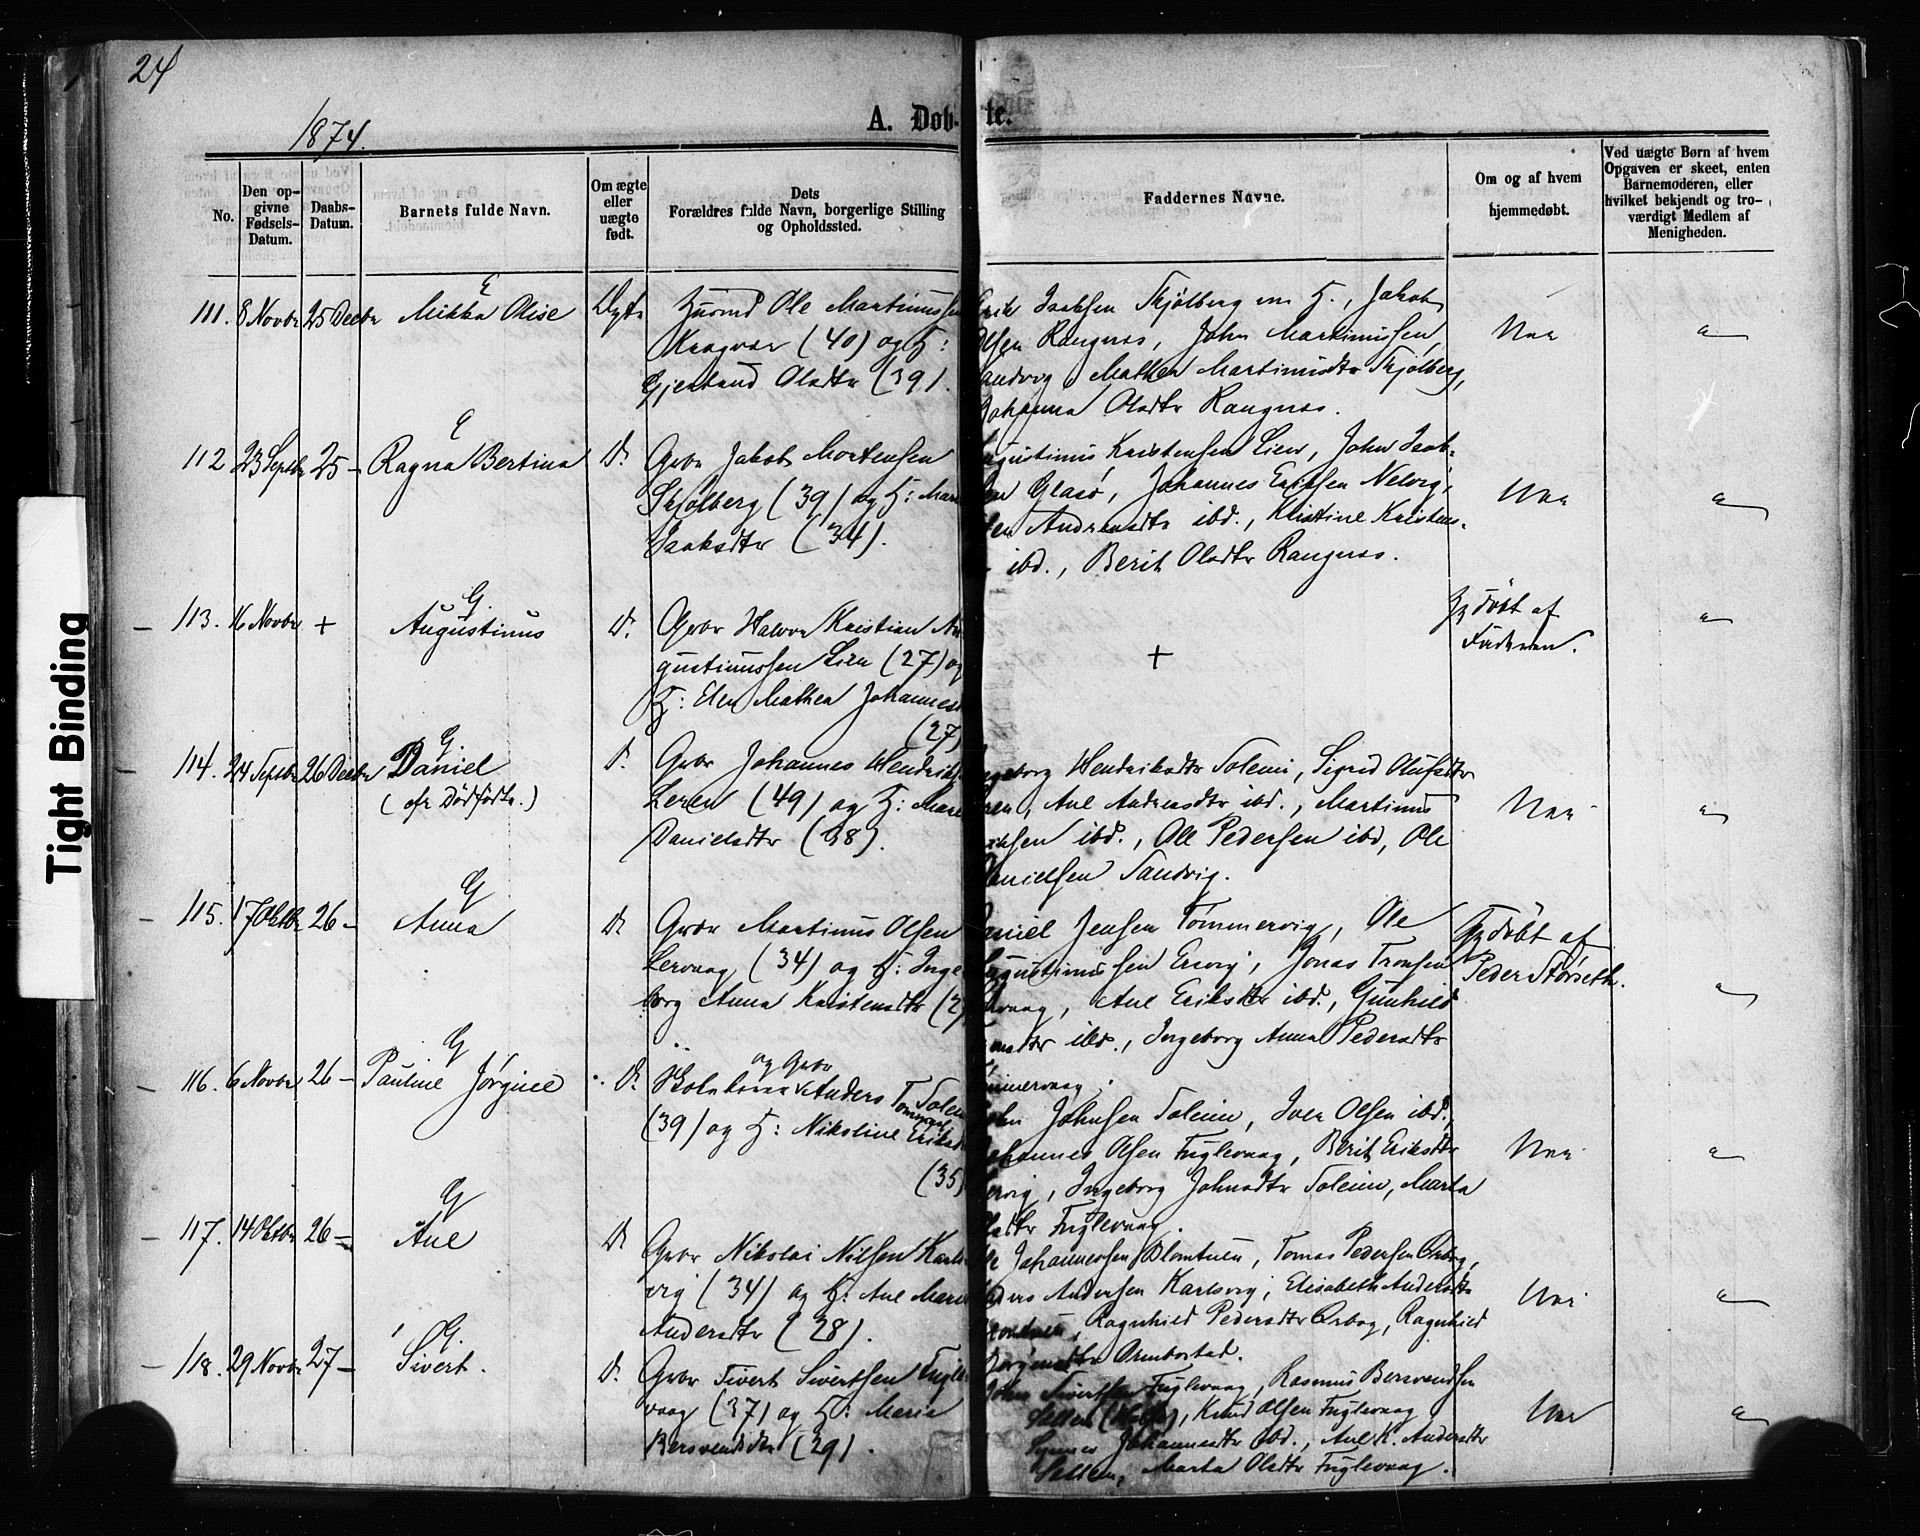 24
1874.
A. Døb- te.
No.
Den op-
givne
Fødsels-
Datum.
Daabs-
Datum.
Barnets fulde Navn.
Om ægte
eller
uægte
født.
Dets
Forældres fulde Navn, borgerlige Stilling
og Opholdssted.
Faddernes Navne.
Om og af hvem
hjemmedøbt.
Ved uægte Børn af hvem
Opgaven er skeet, enten
Barnemoderen, eller
hvilket bekjendt og tro-
værdigt Medlem af
Menigheden.
111. 8 Novbr 25 Decbr Mikka Olise Ægte Husmd Ole Martinussen
Kragvær (40) og H:
Gjertrud Olsdtr (39).
Isaksen Skjølberg m H., Jakob
Olsen Rangnæs, John Martinussen
Sandvig, Mathea Martinusdtr Skjølberg,
Johanna Olsdtr Rangnæs.
Nei
112 23 Septbr 25 – Ragna Bertina D. Gbr Jakob Mortensen
Skjølberg (39) og H: Mari
Isaksdtr (34).
Augustinus Kristensen Lien, John Isak-
sen Glasø, Johannes Eriksen Nelvig,
Andreasdtr ibd., Kristine Kristens-
ibd., Berit Olsdtr Rangnæs.
Nei
113. 16 Novbr + Augustinus D. Gbr Halvor Kristian Au-
gustinussen Lien (27) og
H: Elen Mathea Johannesd
(27)
+
Hjdøbt af
Faderen.
114. 24 Septbr 26 Decbr Daniel
(cfr Dødfødte.)
D. Gbr Johannes Hendriks
Leren (49) og H: Mari
Danielsdtr (38).
Ingeborg Hendriksdtr Soleim, Sigrid Olufsdtr
Leren, Ane Andreasdtr ibd., Martinus
ibd., Ole Pedersen ibd, Ole
Danielsen Sandvig.
Nei
115. 17 Oktbr 26 – Anna D. Gbr Martinus Olsen
Lervaag (34) og H: Inge-
borg Anna Kristensdtr (2
Daniel Jensen Tømmervig, Ole
Augustinussen Ervig, Jonas Tronsen
Lervaag, Ane Eriksdtr ibd., Gunhild
ibd., Ingeborg Anna Pedersdtr
Hjdøbt af
Peder Størseth.
116. 6 Novbr 26 – Pauline Jørgine D. og Gbr
Anders Tommesen Soleim
(39) og H: Nikoline Eriksd
(35)
John Johnsen Soleim, Iver Olsen ibd.,
Johannes Olsen Fuglevaag, Berit Eriksdtr
Ervig, Ingeborg Johnsdtr Soleim, Marta
Olsdtr Fuglevaag.
Nei
117. 14 Oktbr 26 – Ane D. Gbr Nikolai Nilsen Karls-
vig (34) og H: Ane Marie
Andersdtr (28).
Ole Johannessen Blomtuen, Tomas Pedersen
Anders Andersen Karlsvig, Elisabeth Andersdtr
Ragnhild Pedersdtr Ragnhild
Nei
118. 29 Novbr 27 – Sivert. D. Gbr Sivert Sivertsen Fugle-
vaag (37) og H: Marie
Bersvendsdtr (29).
John Sivertsen Fuglevaag, Rasmus Bersvendsen
Knud Olsen Fuglevaag
Johannesdtr ibd., Ane K. Andersdtr
Marta Olsdtr Fuglevaag.
Nei
Tight Binding